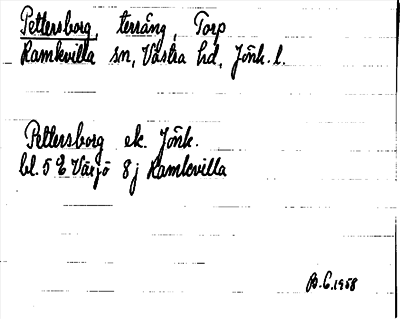 Pettersborg, terräng, Torp
Ramkvilla sn, Västra hd, Jönk. l.
Pettersborg ek. Jönk.
bl. 5 E Växjö 8 j Ramkvilla
B.C. 1958